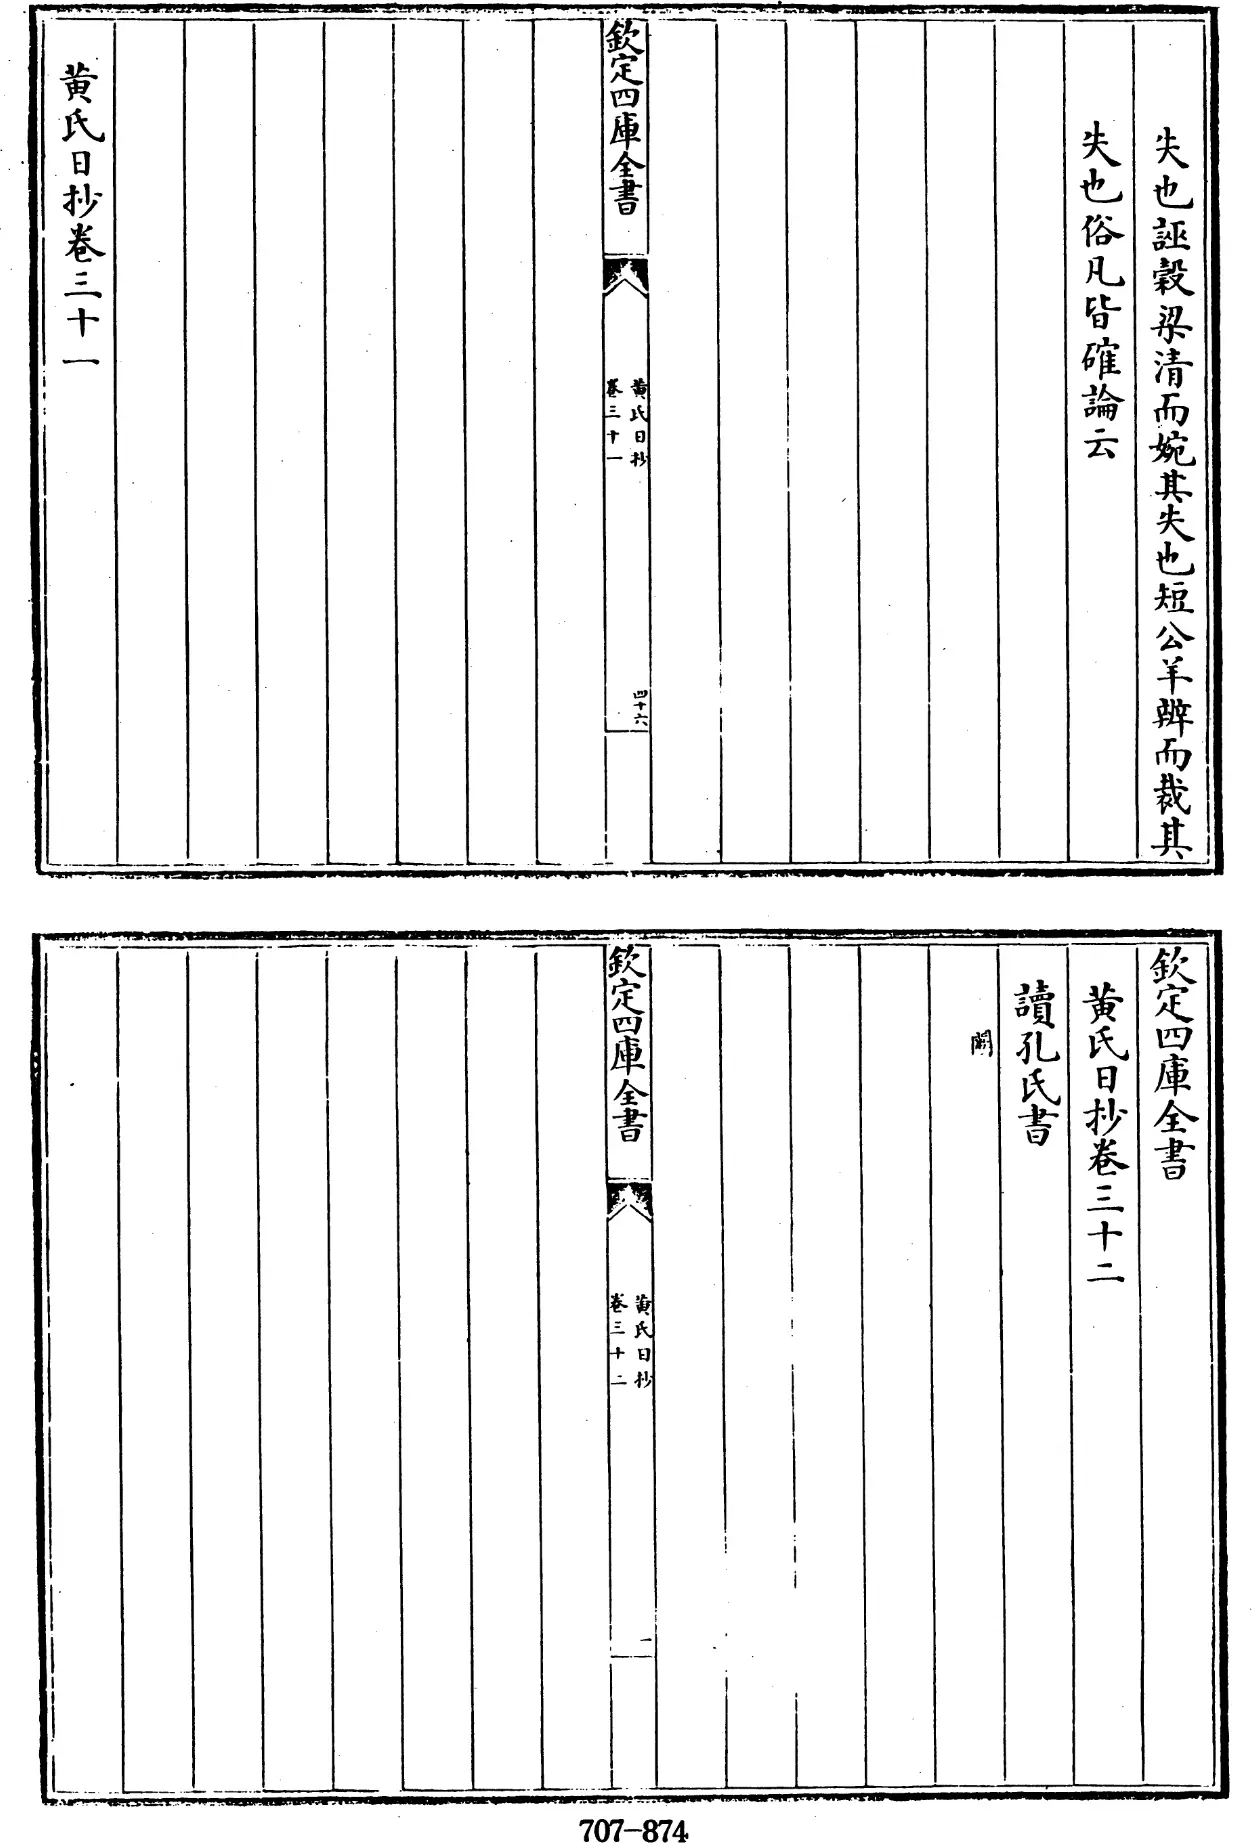 失也誣穀梁清而婉其失也短公羊辯而裁其
失也俗凡皆確論云
欽定四庫全書
黄氏日抄
卷三十一
四十六
黄氏日抄卷三十一
欽定四庫全書
黄氏日抄卷三十二
讀孔氏書
闕
欽定四庫全書
黄氏日抄
卷三十二
一
707-874